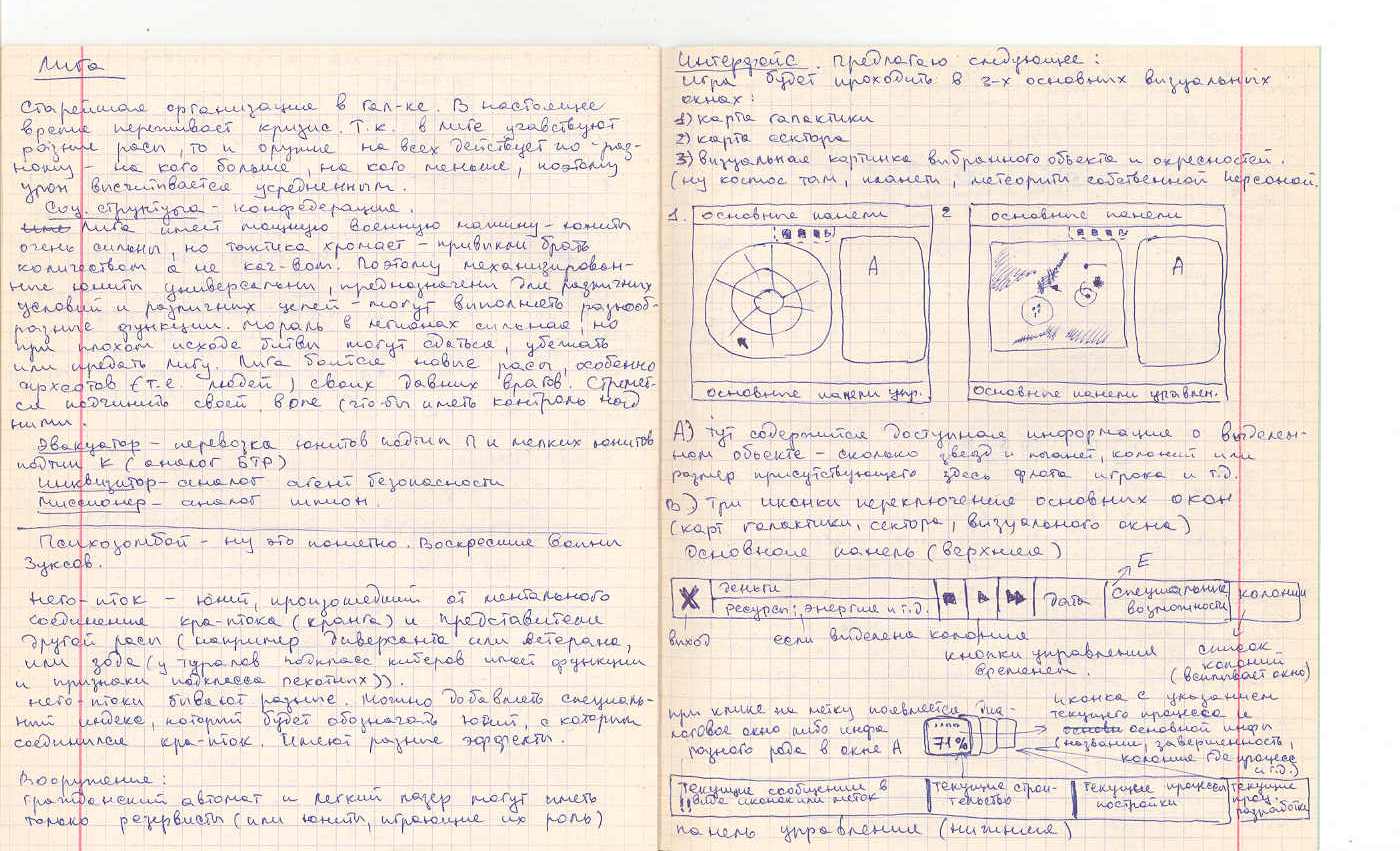 Лига
Старейшая организация в гал-ке. В настоящее
время переживает кризис. Т.к. в лиге учавствуют
разные расы, то и оружие на всех действует по-раз-
ному - на кого больше, на кого меньше, поэтому
урон высчитывается усредненным.
Соц. структура - конфедерация.
Лига имеет мощную военную машину - юниты
очень сильны, но тактика хромает - привыкли брать
количеством а не кач-вом. Поэтому механизирован-
ные юниты универсальны, предназначены для различных
условий и различных целей - могут выполнять разнооб-
разные функции. Мораль в легионах сильная, но
при плохом исходе битвы могут сдаться, убежать
или предать лигу. Лига боится новые расы, особенно
архсотов (т.е. людей) своих давних врагов. Стремит-
ся подчинить своей воле (что-бы иметь контроль над
ними.
Эвакуатор - перевозка юнитов подтип П и мелких юнитов
подтип К (аналог БТР)
Инквизитор - аналог агент безопасности
Миссионер - аналог шпион
Психозомбой - ну это понятно. Воскресшие воины
Зуксов.
Него-пток - юнит, произошедший от ментального
соединения кра-птока (кранга) и представителя
другой расы (например диверсанта или ветерана,
или зода (у туралов подкласс киберов имеет функции
и признаки подкласса пехотных)).
Него-птоки бывают разные. Можно добавлять специаль-
ный индекс, который будет обозначать юнит, с которым
соединился кра-пток. Имеют разные эффекты.
Вооружение:
Гражданский автомат и легкий лазер могут иметь
только резервисты (или юниты, играющие их роль)
Интерфейс. Предлагаю следующее:
Игра будет проходить в 3-х основных визуальных
окнах:
1) карта галактики
2) карта сектора
3) визуальная картинка выбранного объекта и окресностей.
(ну космос там, планеты, метеориты собственной персоной.
1. основные панели
2 основные панели
А
А
основные панели упр.
основные панели управлен.
А) Тут содержится доступная информация о выделен-
ном объекте - сколько звезд и планет, колоний или
размер присутствующего здесь флота игрока и т.д.
В) Три иконки переключения основных окон
(карт галактики, сектора, визуального окна)
Основная панель (верхняя)
Е
X
деньги
ресурсы; энергия и т.д.
дата
специальные
возможности
колонии
выход
если выделена колония
кнопки управления
временем.
список
колоний
(всплывает окно)
при клике на метку появляется диа-
логовое окно либо инфа
разного рода в окне А
71%
иконка с указанием
текущего процесса и
основной инфы
(название, завершенность,
колония где процесс
и т.д.)
Текущие сообщения в
виде иконок или меток
текущие строи-
тельство
текущие процессы
постройки
текущие
проц.
разработки
панель управления (нижняя)